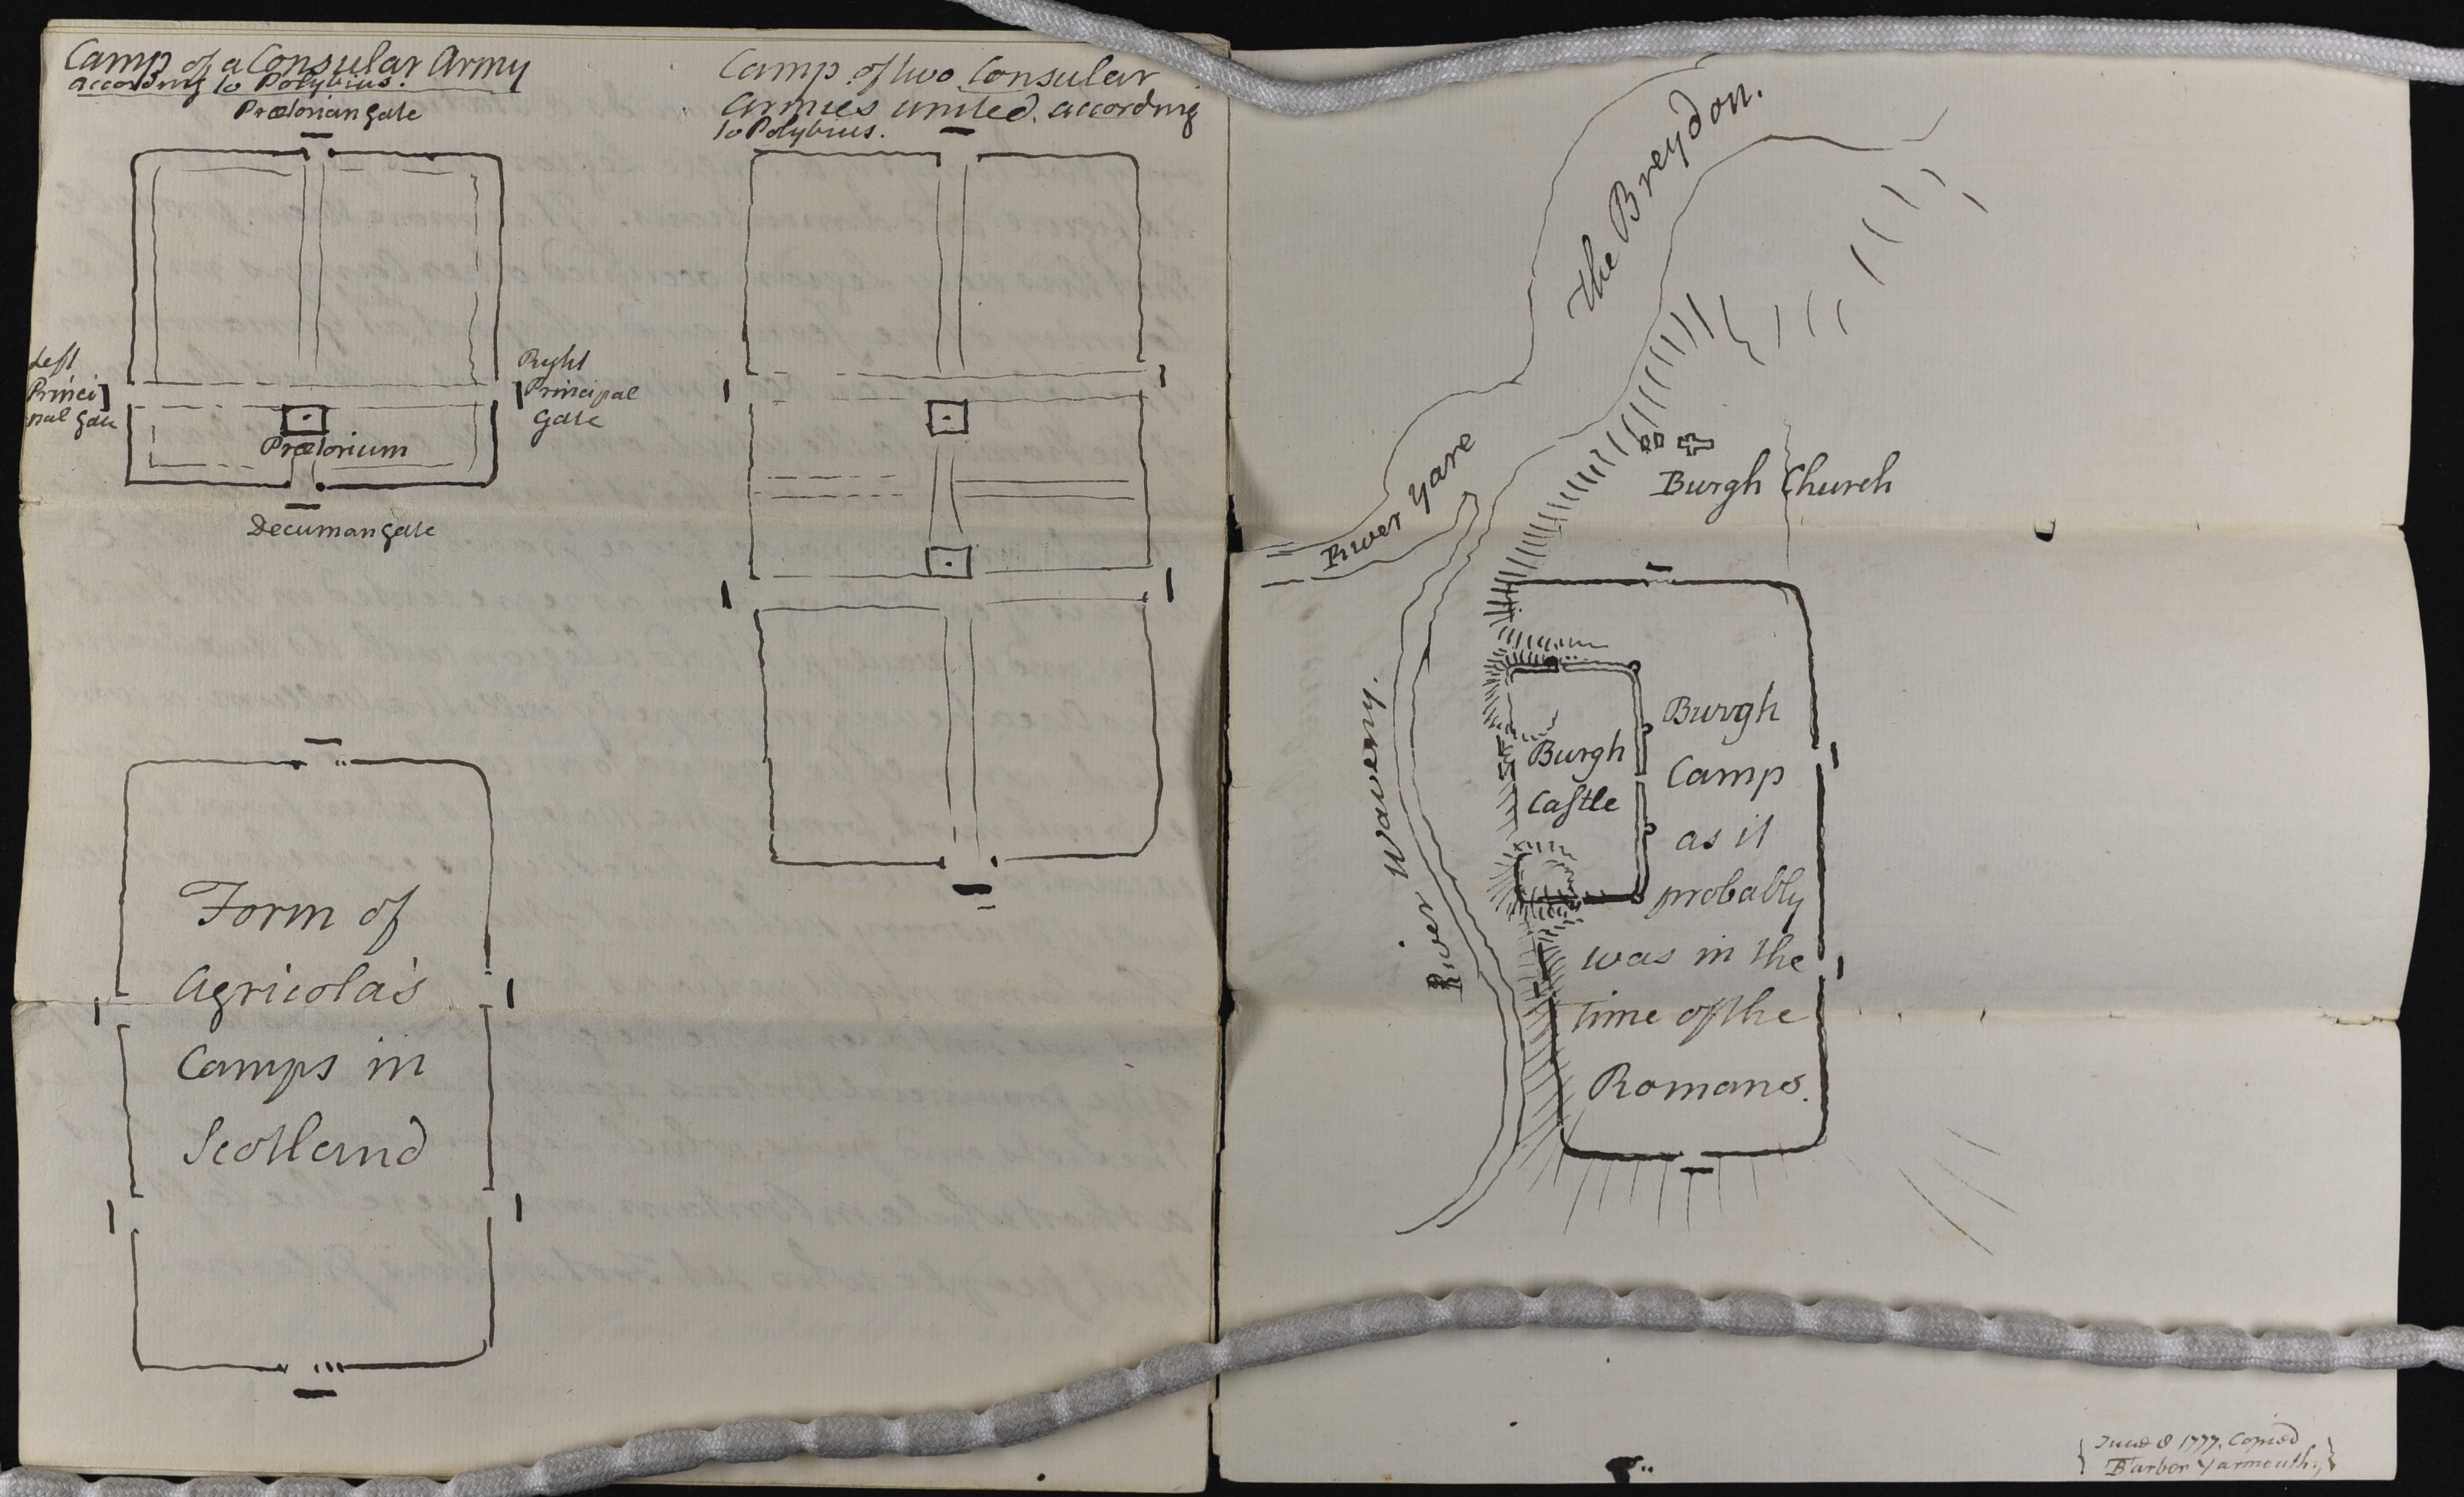 Camp of a Consular Army
according to Polybius.
Prætorian gate
Left
Princi
pal gate
Right
Principal
Gate
Prætorium
Decuman gate
Camp of two Consular
Armies united, according
to Polybius.
Form of
Agricola's
Camps in
Scotland
The Breydon.
River Yare
Burgh Church
River Waveny.
Burgh
Castle
Burgh
Camp
as it
probably
was in the
time of the
Romans.
June 8 1777. Copied
Barber Yarmouth.